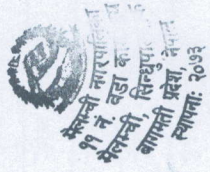 मेलम्ची नगरपालिका
११ नं. वडा का
मेलम्ची, सिन्धुपा
बागमती प्रदेश, नेपाल
स्थापनाः २०७३